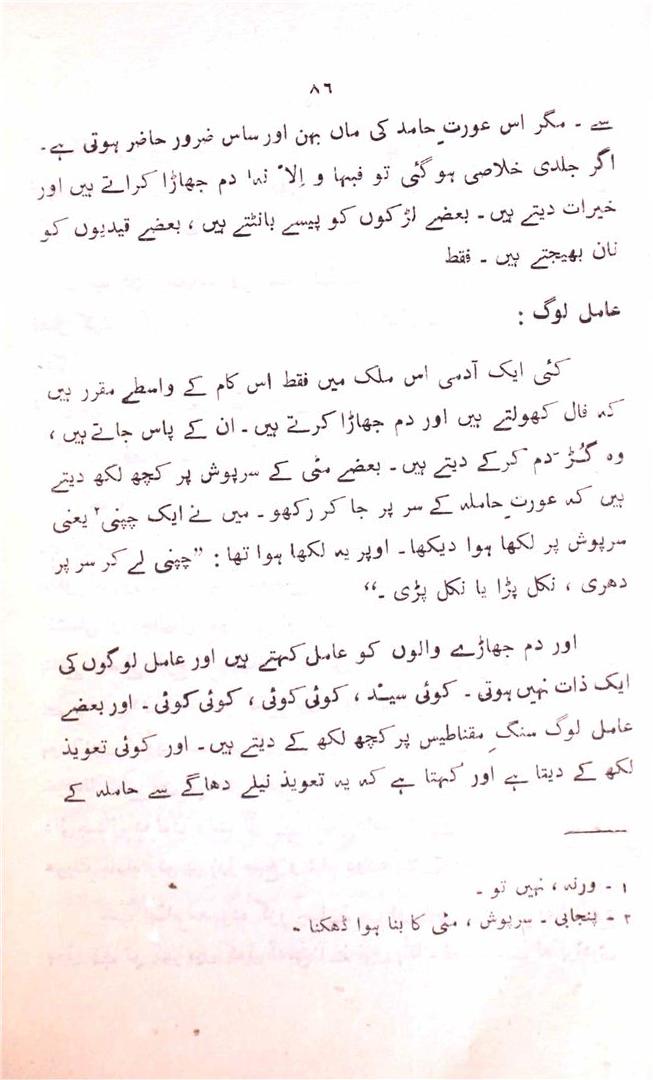 ۸٦
سے ۔ مگر اس عورتِ حامد کی ماں بہن اور ساس ضرور حاضر ہوتی ہے۔
اگر جلدی خلاصی ہو گئی تو فبہا و اِلاّ نہ۱ دم جھاڑا کراتے ہیں اور
خیرات دیتے ہیں۔ بعضے لڑکوں کو پیسے بانٹتے ہیں ، بعضے قیدیوں کو
نان بھیجتے ہیں ۔ فقط
عامل لوگ :
کئی ایک آدمی اس ملک میں فقط اس کام کے واسطے مقرر ہیں
کہ فال کھولتے ہیں اور دم جھاڑا کرتے ہیں۔ ان کے پاس جاتے ہیں ،
وہ گُڑ دَم کرکے دیتے ہیں۔ بعضے مٹی کے سرپوش پر کچھ لکھ دیتے
ہیں کہ عورتِ حاملہ کے سر پر جا کر رکھو ۔ میں نے ایک چپنی۲ یعنی
سرپوش پر لکھا ہوا دیکھا۔ اوپر یہ لکھا ہوا تھا : ”چپنی لے کر سر پر
دھری ، نکل پڑا یا نکل پڑی ۔“
اور دم جھاڑے والوں کو عامل کہتے ہیں اور عامل لوگوں کی
ایک ذات نہیں ہوتی ۔ کوئی سیّد ، کوئی کوئی ، کوئی کوئی ۔ اور بعضے
عامل لوگ سنگِ مقناطیس پر کچھ لکھ کے دیتے ہیں۔ اور کوئی تعویذ
لکھ کے دیتا ہے اور کہتا ہے کہ یہ تعویذ نیلے دھاگے سے حاملہ کے
۱ ۔ ورنہ ، نہیں تو ۔
۲ ۔ پنجابی ۔ سرپوش ، مٹی کا بنا ہوا ڈھکنا ۔